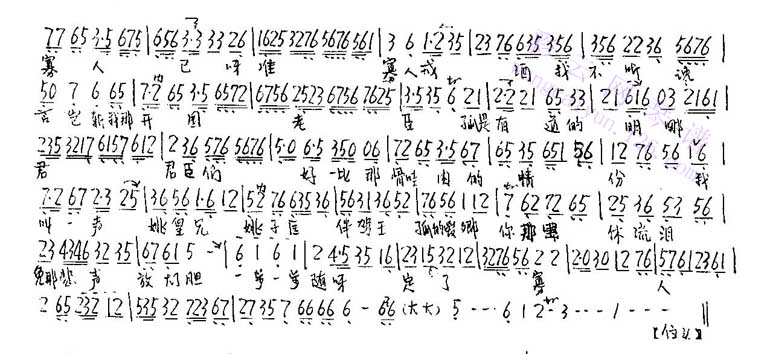 77 65 3·5 675 | 656 3·3 33 26 | 1625 3276 5676 561 | 3 6 1·2 35 | 23 76 635 356 | 356 22 36 5676 |
寡 人 已 呀 准 寡 人 戒 酒 我 不 听 谗
50 7 6 65 | 7·2 65 3·5 6572 | 6756 2523 6756 7625 | 3·5 35 6 21 | 2·2 21 65 33 | 21 616 03 2161 |
言 我 那 开 国 老 臣 孤 是 有 道 的 明 哪
235 3217 6157 612 | 2 36 576 5676 | 5·0 6·5 350 06 | 72 65 3·5 67 | 65 35 651 56 | 12 76 56 16 |
君 君 臣 们 好 一 比 那 骨 肉 的 情 份 我
7·2 67 2·3 25 | 36 56 1·6 12 | 52 76 635 36 | 563136 52 | 76 56 1 12 | 7 62 72 65 | 25 36 53 56 |
叫 一 声 姚 皇 兄 姚 子 匡 伴 驾 王 孤 的 爱 卿 你 那 里 休 流 泪
23 4346 32 35 | 67 61 5 - | 6 1 6 1 | 2 4·5 35 16 | 23 15 32 12 | 3276 56 2 2 | 2·0 30 12 76 | 5761 2361 |
那 悲 声 放 大 胆 一 步 一 步 随 呀 定 了 寡 人
2 65 232 12 | 535 32 723 67 | 27 35 7 66 66 6 - 66 (大大) 5 ··· 6 1 2 - 3 ···· 1 --- ·· ||